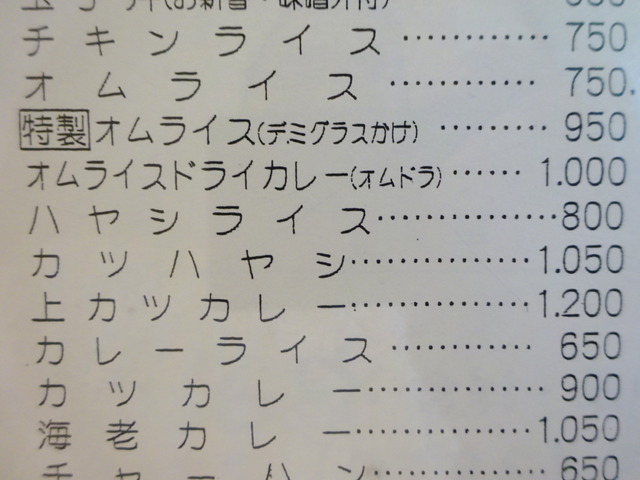 玉子丼(お新香・味噌汁付)
チキンライス………… 750
オムライス………… 750.
特製 オムライス(デミグラスかけ)……… 950
オムライスドライカレー(オムドラ)…… 1.000
ハヤシライス……………800
カツハヤシ…………… 1.050
上カツカレー…………… 1.200
カレーライス………… 650
カツカレー…………… 900
海老カレー…………… 1.050
チャーハン…………… 650